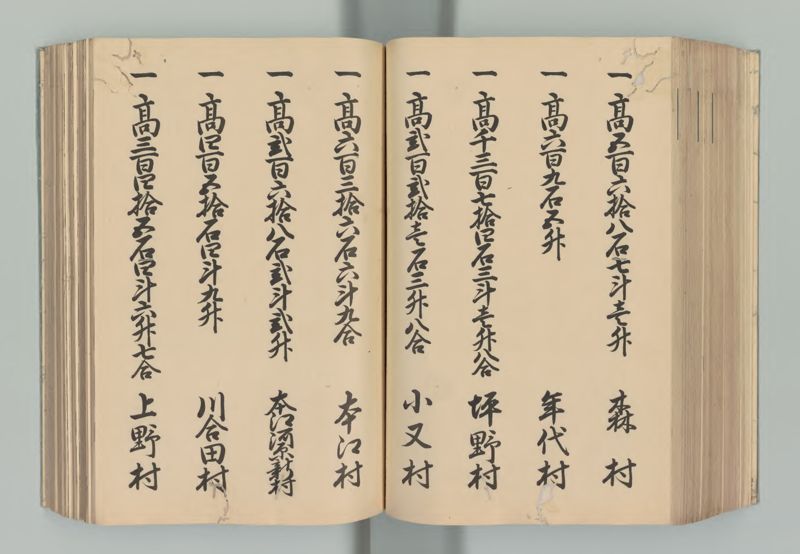 一高五百六拾八石七斗壱升 森村
一高六百九石五升 年代村
一高千三百七拾四石三斗壱升八合 坪野村
一高弐百弐拾壱石三升八合 小又村
一高六百三拾六石六斗九合 本江村
一高弐百六拾八石弐斗弐升 本江河原新村
一高四百五拾石四斗九升 川合田村
一高三百四拾五石四斗六升七合 上野村